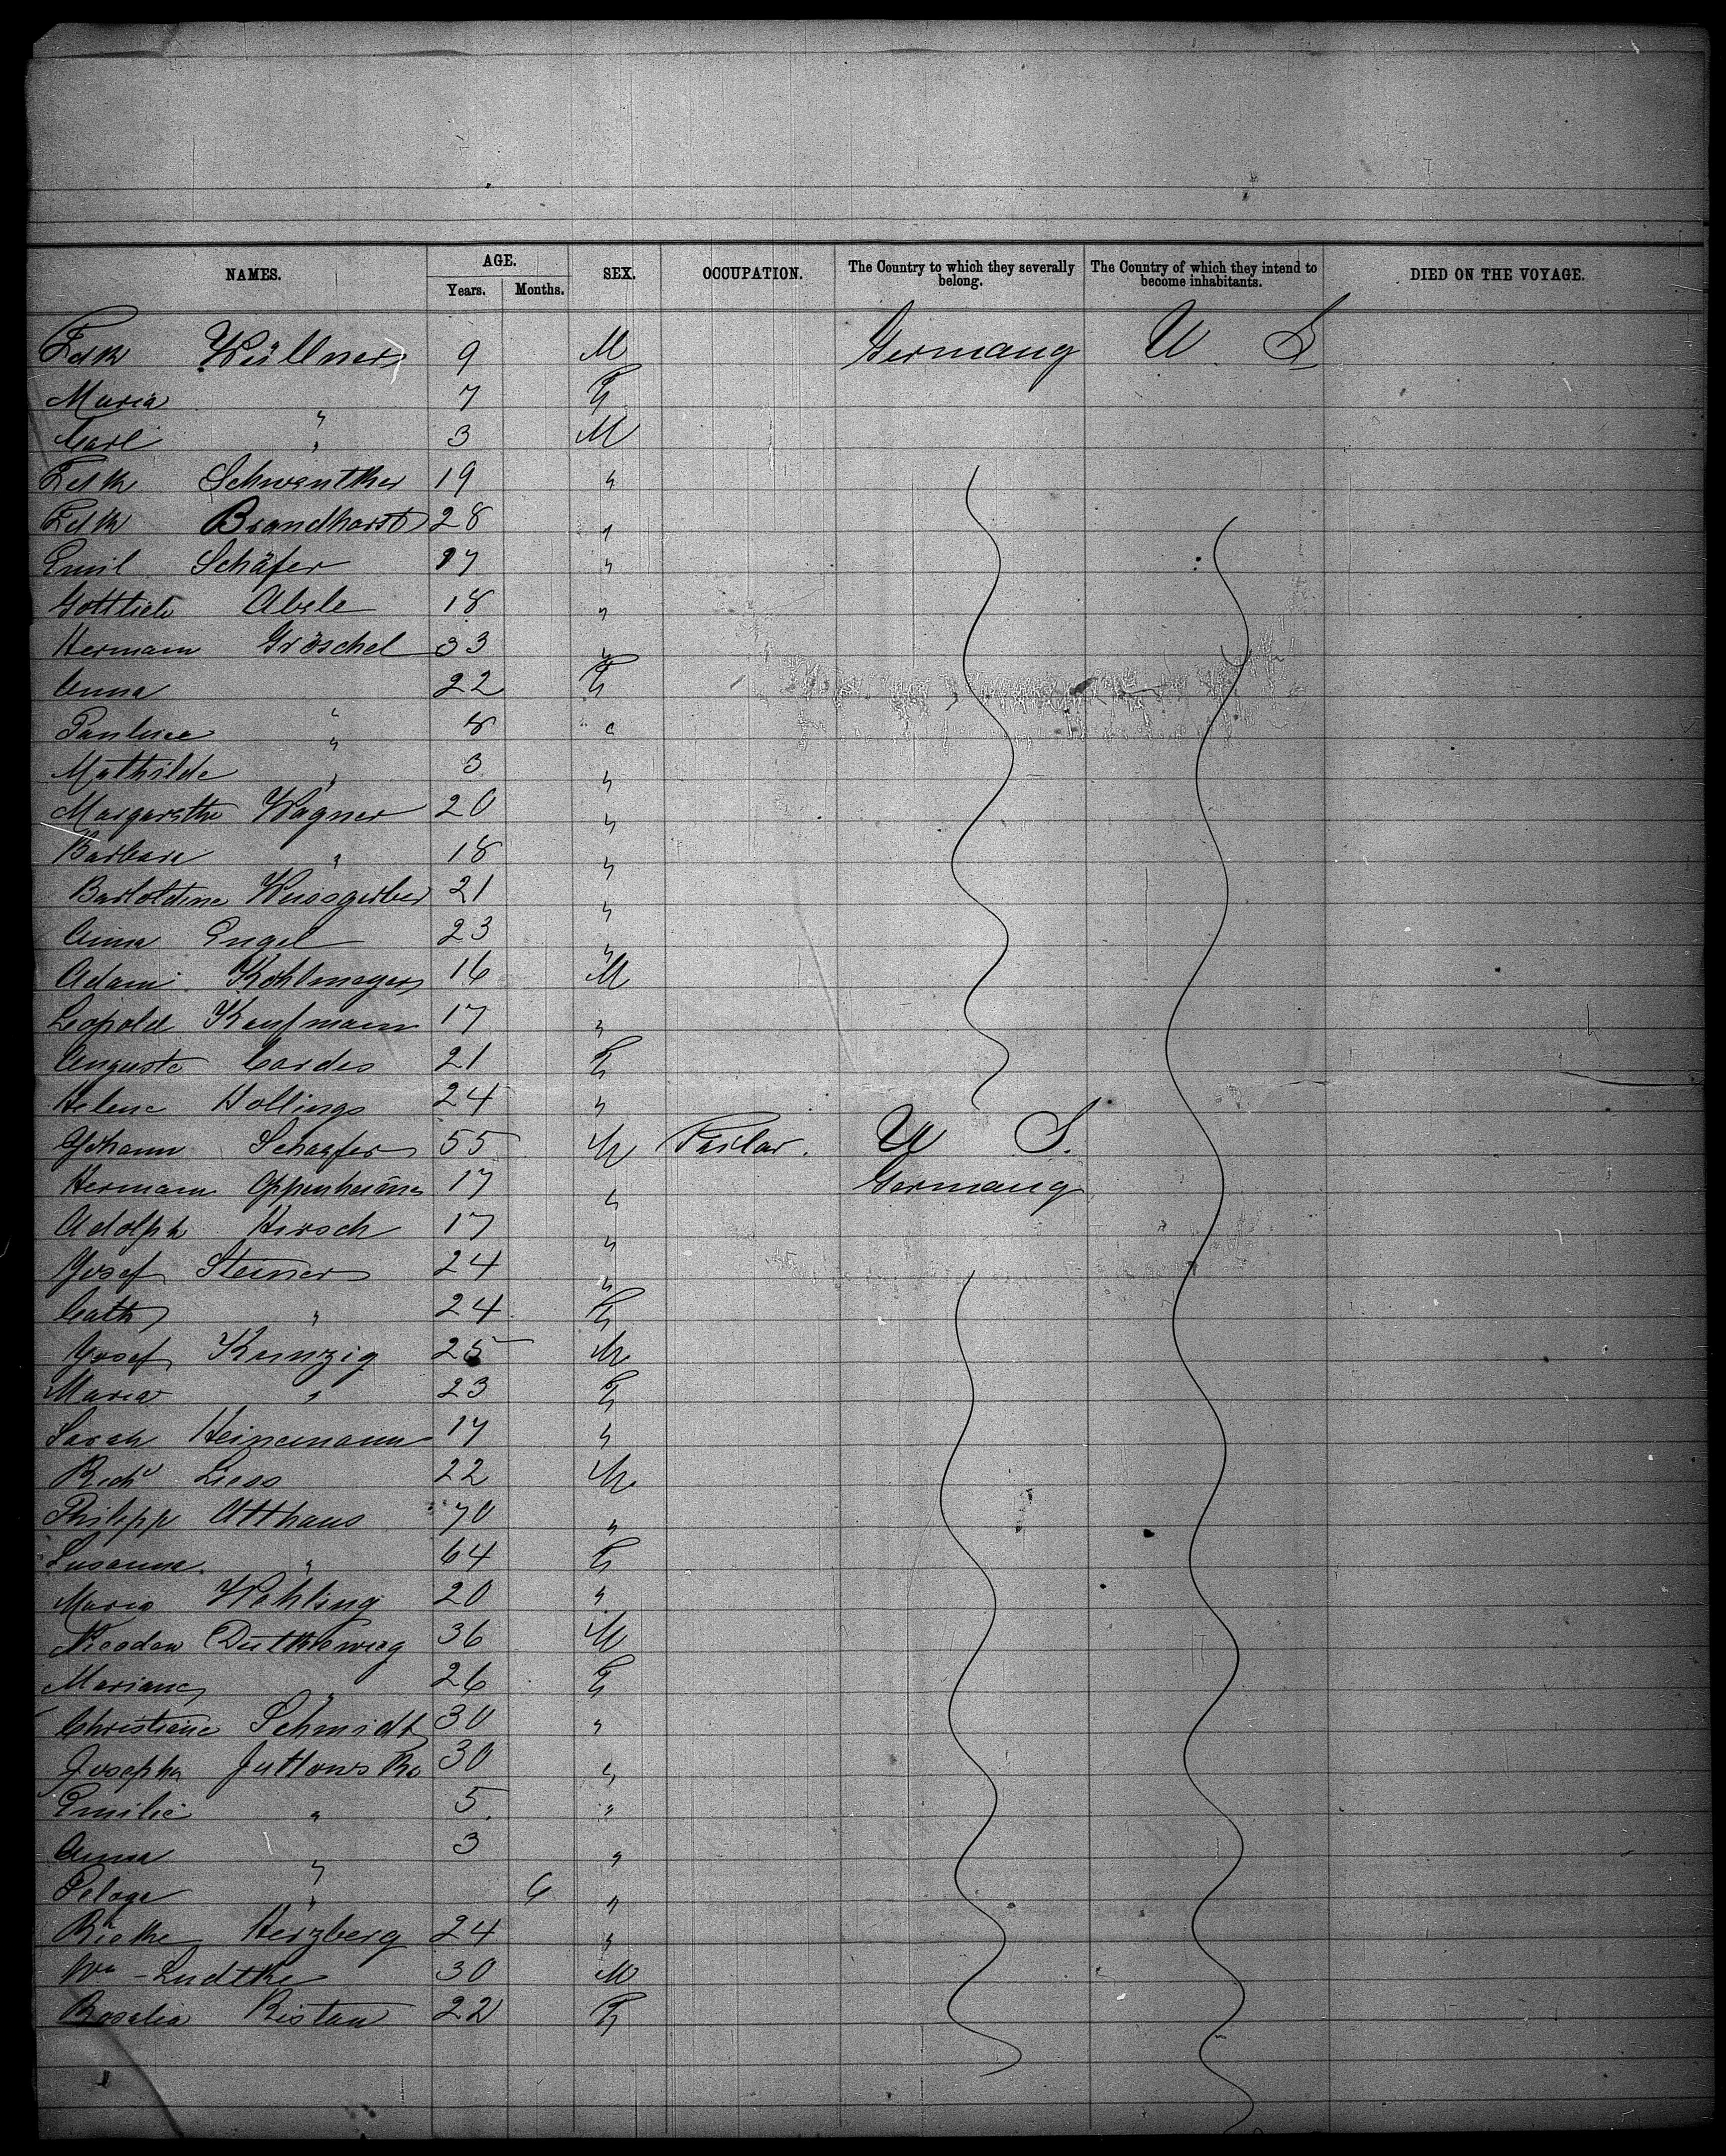 NAMES. AGE. SEX. OCCUPATION. The Country to which they severally belong. The Country of which they intend to become inhabitants. DIED ON THE VOYAGE.
Years. Months.
Fdk Wüllner 9 M Germany U S
Maria " 7 F
Carl " 3 M
Fdk Schwenther 19 "
Fdk Brandhorst 28 "
Emil Schäfer 17 "
Gottlieb Abele 18 "
Hermann Gröschel 33 "
Anna " 22 F
Pauline " 8 "
Mathilde " 3 "
Margarethe Wagner 20 "
Barbara " 18 "
Weissgerber 21 "
Anna Engel 23 "
Adam Kohlmeyer 16 M
Leopold Kaufmann 17 "
Auguste Cordes 21 F
Helene Hollings 24 "
Johann Schaefer 55 M U S.
Hermann Oppenheimer 17 " Germany
Adolph Hirsch 17 "
Josef Steiner 24 "
Cath " 24 F
Josef Kunzig 25 M
Maria " 23 F
Sarah Heinemann 17 "
Richd Liess 22 M
Philipp Althaus 70 "
Susanna " 64 F
Maria Wehling 20 "
36 M
Mariane " 26 F
Christiane Schmidt 30 "
Josepha 30 "
Emilie " 5 "
Anna " 3 "
Pelage " 6 "
Rieke Herzberg 24 "
Wm Ludtke 30 M
Rosalia Ristau 22 F